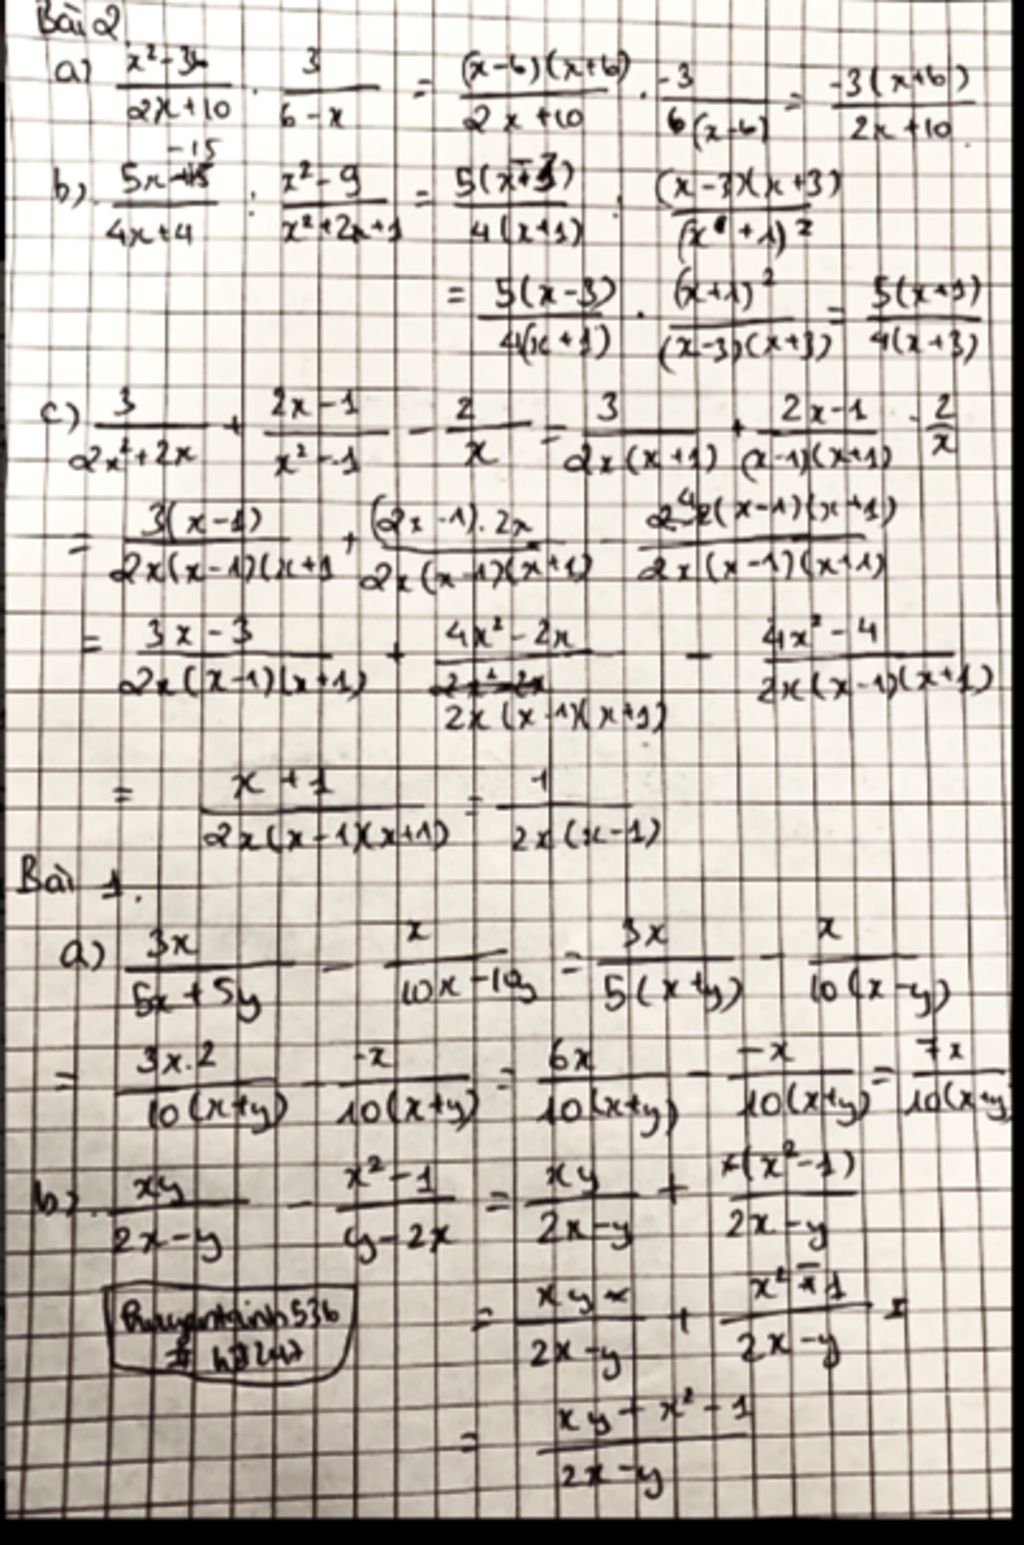 Bài 2
a) (x²-36)/(2x+10) . 3/(6-x) = (x-6)(x+6)/(2x+10) . -3/(6(x-6)) = -3(x+6)/(2x+10)
b) (5x-15)/(4x+4) : (x²-9)/(x²+2x+1) = 5(x-3)/4(x+1) : (x-3)(x+3)/(x+1)²
= 5(x-3)/4(x+1) . (x+1)²/(x-3)(x+3) = 5(x+1)/4(x+3)
c) 3/(2x²+2x) + (2x-1)/(x²-1) - 2/x = 3/2x(x+1) + (2x-1)/(x-1)(x+1) - 2/x
= 3(x-1)/2x(x-1)(x+1 + (2x-1).2x/2x(x-1)(x+1) - (x-1)(x+1)/2x(x-1)(x+1)
= (3x-3)/2x(x-1)(x+1) + (4x²-2x)/2x(x-1)(x+1) - (4x²-4)/2x(x-1)(x+1)
= (x+1)/2x(x-1)(x+1) = 1/2x(x-1)
Bài 1.
a) 3x/(5x+5y) - x/(10x-10y) = 3x/5(x+y) - x/10(x-y)
= 3x.2/10(x+y) - -x/10(x+y) = 6x/10(x+y) - -x/10(x+y) = 7x/10(x+y
b) xy/(2x-y) - (x²-1)/(y-2x) = xy/(2x-y) + (x²-1)/(2x-y)
= xy/(2x-y) + (x²-1)/(2x-y) =
= (xy+x²-1)/(2x-y)